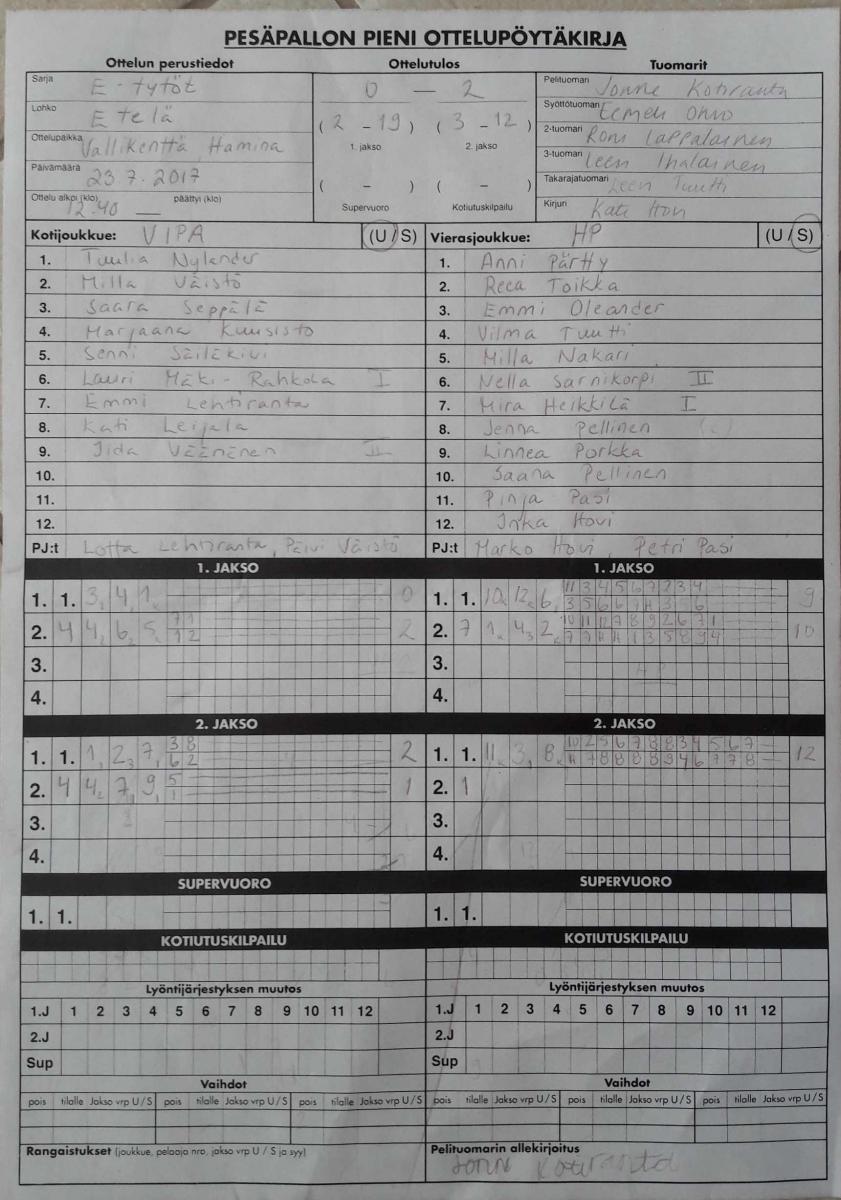 PESÄPALLON PIENI OTTELUPÖYTÄKIRJA
Ottelun perustiedot Ottelutulos Tuomarit
Sarja E-tytöt
Lohko Etelä
Ottelupaikka Vallikenttä Hamina
Päivämäärä 23.7.2017
Ottelu alkoi (klo) 12.40 — päättyi (klo)
0 — 2
(2 – 19) (3 – 12)
1. jakso 2. jakso
( – ) ( – )
Supervuoro Kotiutuskilpailu
Pelituomari Jonne Kotiranta
Syöttötuomari Eemeli
2-tuomari Roni Lappalainen
3-tuomari Leen Ihalainen
Takarajatuomari Leen Tuutti
Kirjuri Kati Hovi
Kotijoukkue: VIPA (U / S) Vierasjoukkue: HP (U / S)
1. Tuulia Nylander
2. Milla Väistö
3. Saara Seppälä
4. Marjaana Kuusisto
5. Senni Säiläkivi
6. Lauri Mäki-Rahkola I
7. Emmi Lehtiranta
8. Kati Leijala
9. Iida Väänänen II
10.
11.
12.
PJ:t Lotta Lehtiranta, Päivi Väistö
1. Anni Pärtty
2. Reca Toikka
3. Emmi Oleander
4. Vilma Tuutti
5. Milla Nakari
6. Nella Sarnikorpi II
7. Mira Heikkilä I
8. Jenna Pellinen (c)
9. Linnea Porkka
10. Saana Pellinen
11. Pinja Pasi
12. Inka Hovi
PJ:t Marko Hovi, Petri Pasi
1. JAKSO 1. JAKSO
1. 1. 3 4 1 0
2. 4 4 6 5 7 1 2
1 2
3.
4.
1. 1. 10 12 6 11 3 4 5 6 7 2 3 4 9
2. 7 1 4 2 10 11 12 7 8 9 2 6 7 1 10
3.
4.
2. JAKSO 2. JAKSO
1. 1. 1 2 7 3 8 2
6 2
2. 4 4 7 9 5 1
1
3.
4.
1. 1. 11 3 8 10 2 5 6 7 8 8 3 4 5 6 7 12
11 7 8 8 8 8 9 4 6 7 7 8
2. 1
3.
4.
SUPERVUORO SUPERVUORO
1. 1. 1. 1.
KOTIUTUSKILPAILU KOTIUTUSKILPAILU
Lyöntijärjestyksen muutos Lyöntijärjestyksen muutos
1.J 1 2 3 4 5 6 7 8 9 10 11 12 1.J 1 2 3 4 5 6 7 8 9 10 11 12
2.J 2.J
Sup Sup
Vaihdot Vaihdot
pois tilalle Jakso vrp U / S pois tilalle Jakso vrp U / S pois tilalle Jakso vrp U / S pois tilalle Jakso vrp U / S pois tilalle Jakso vrp U / S pois tilalle Jakso vrp U / S
Rangaistukset (joukkue, pelaaja nro, jakso vrp U / S ja syy) Pelituomarin allekirjoitus
Jonne Kotiranta